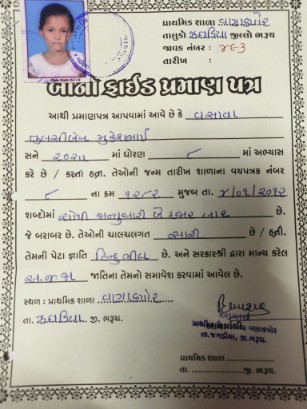 પ્રાથમિક શાળા વાણાકપોર
તાલુકો ઝઘડિયા જીલ્લો ભરૂચ
જાવક નંબર : ૨૯૩
તારીખ :
બોનોફાઈડ પ્રમાણ પત્ર
આથી પ્રમાણપત્ર આપવામાં આવે છે કે વસાવા
તુલસીબેન મુકેશભાઈ
સને ૨૦૨૫ માં ધોરણ ૮ માં અભ્યાસ
કરે છે / કરતાં હતા. તેઓની જન્મ તારીખ શાળાના વયપત્રક નંબર
૮ ના ક્રમ ૧૨૮૨ મુજબ તા. ૪/૦૧/૨૦૧૨
શબ્દોમાં ચોથી જાન્યુઆરી બે હજાર બાર છે.
જે બરાબર છે. તેઓની ચાલચલગત સારી છે / હતી.
તેમની પેટા જ્ઞાતિ હિન્દુ ભીલ છે. અને સરકારશ્રી દ્વારા માન્ય કરેલ
અ.જ.જા જાતિના તેમનો સમાવેશ કરવામાં આવેલ છે.
સ્થળ : પ્રાથમિક શાળા વાણાકપોર
તા. ઝઘડિયા જી. ભરૂચ.
આચાર્ય
તા.જગડીયા, જી.ભરૂચ.
પ્રાથમિક શાળા
તા. જી. ભરૂચ.